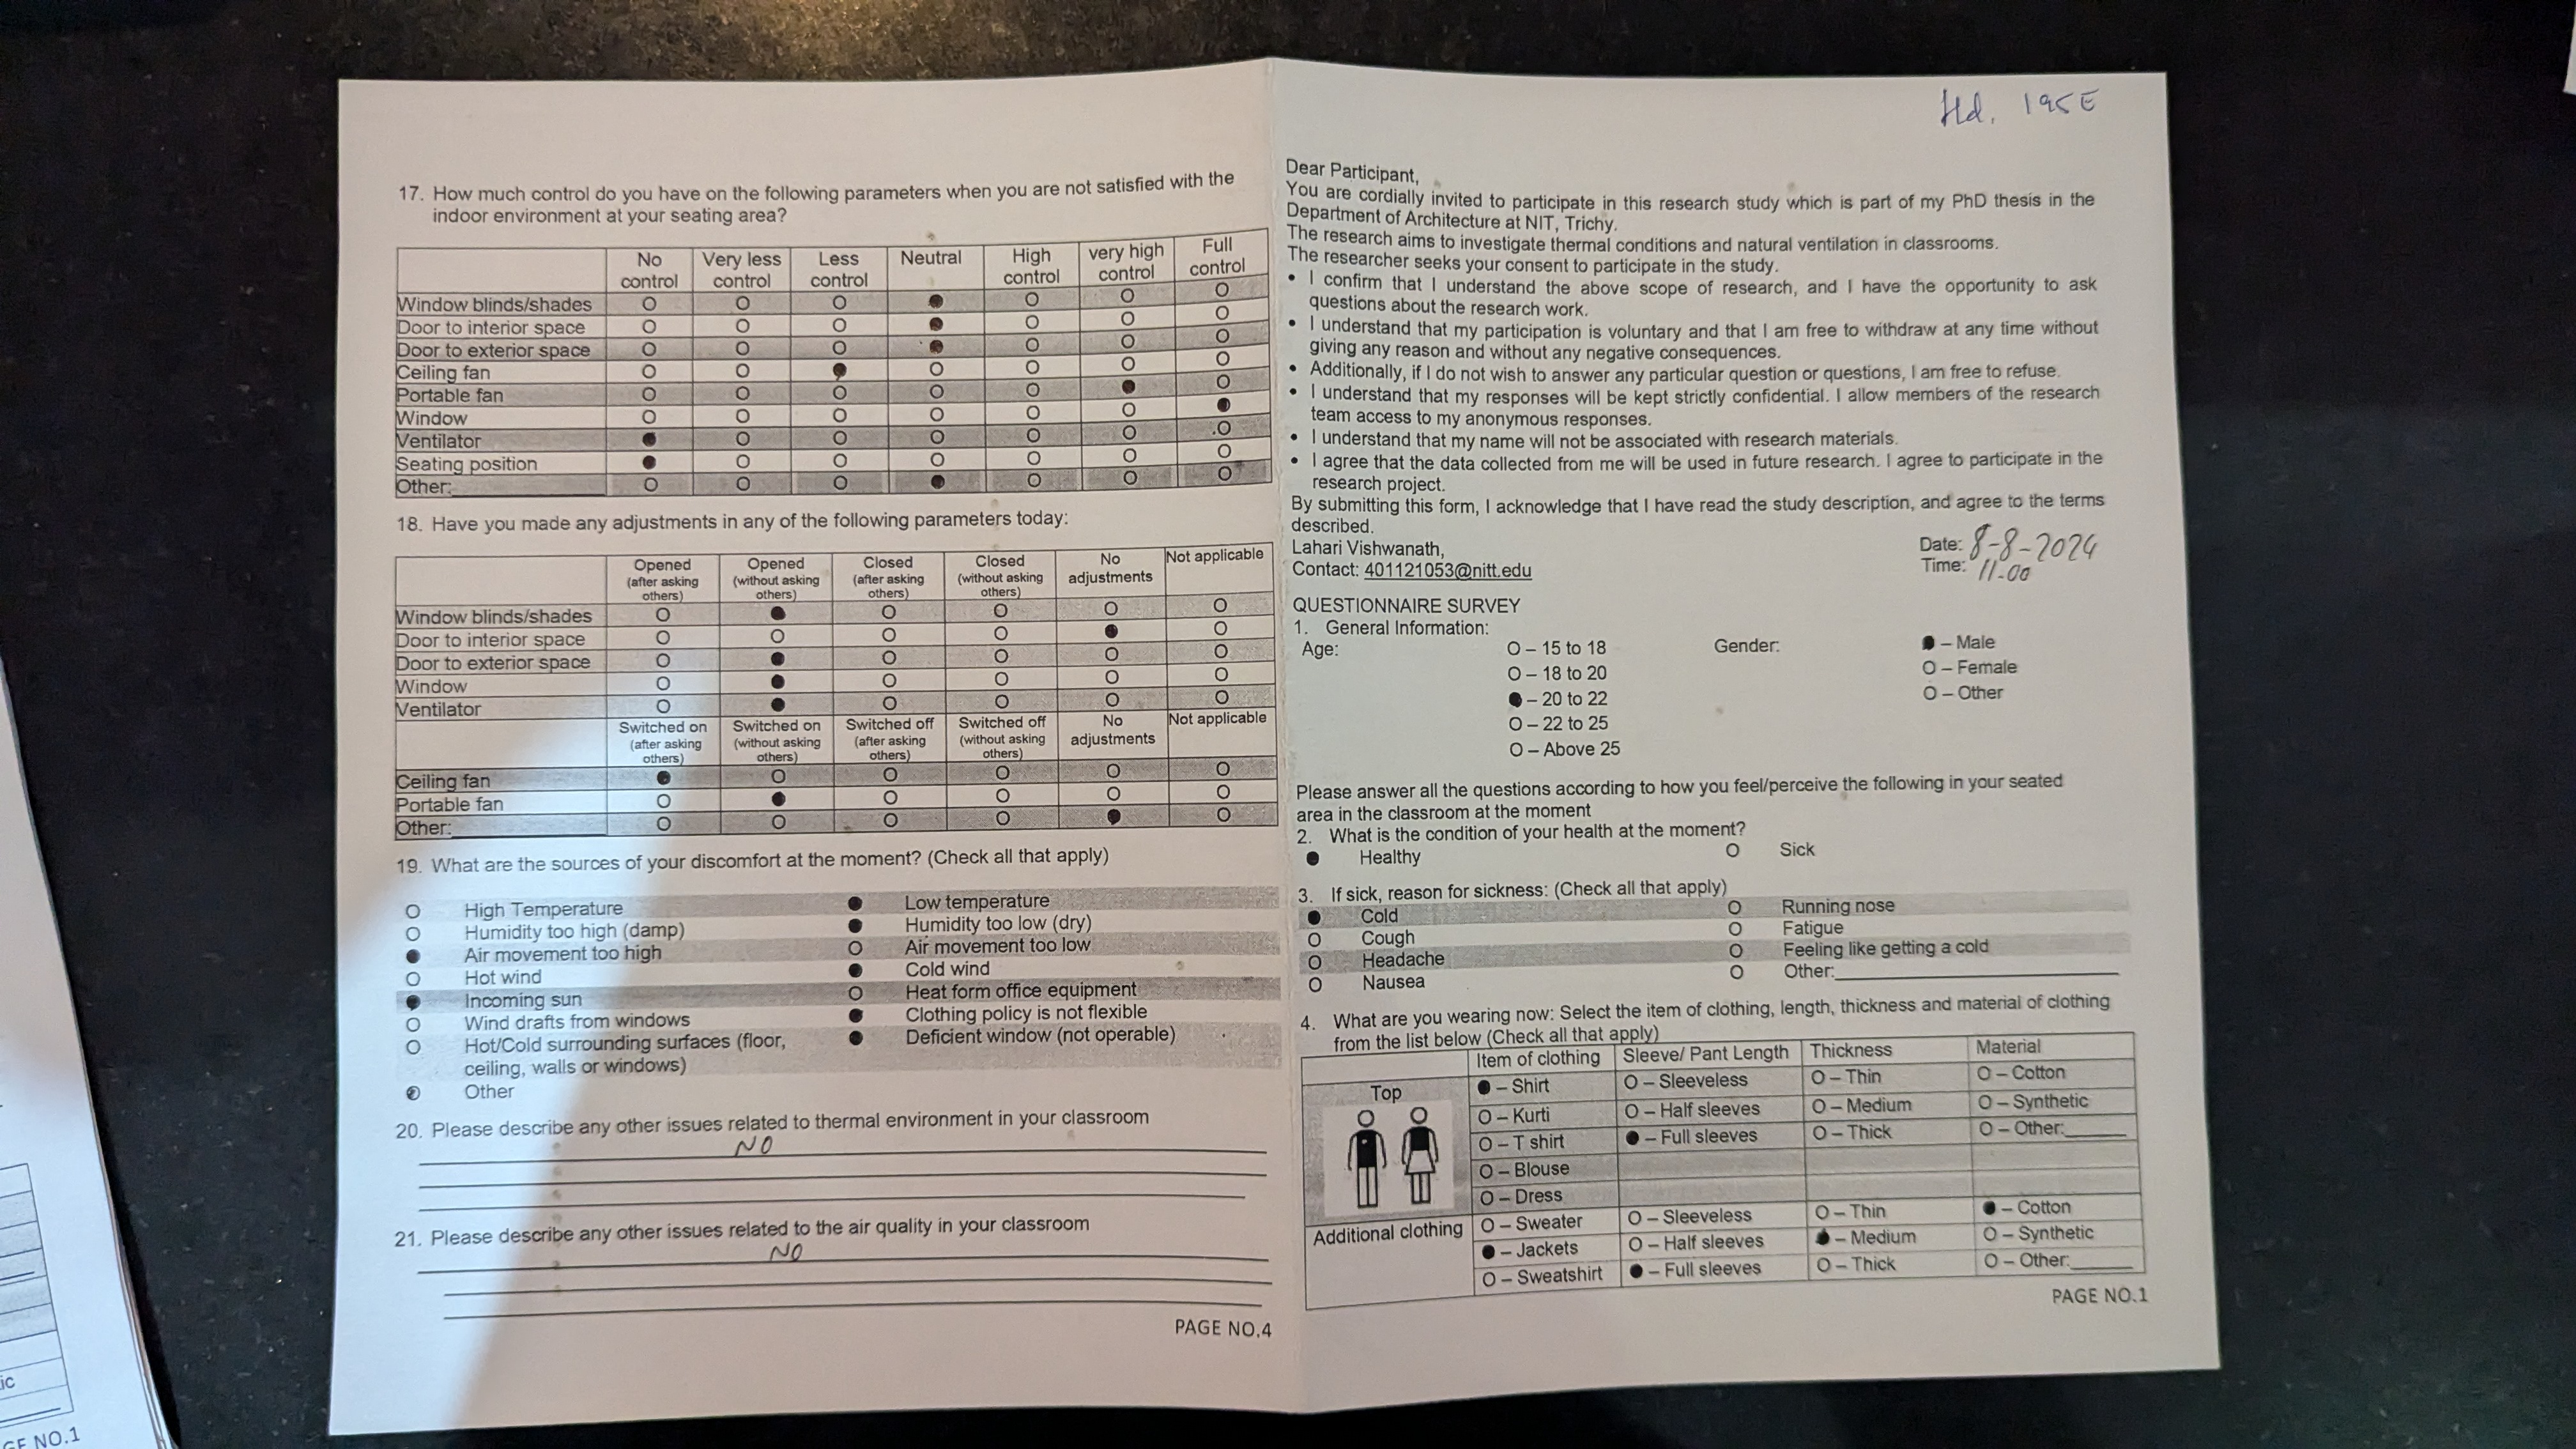 17. How much control do you have on the following parameters when you are not satisfied with the
indoor environment at your seating area?
No control Very less control Less control Neutral High control very high control Full control
Window blinds/shades O O O ● O O O
Door to interior space O O O ● O O O
Door to exterior space O O O ● O O O
Ceiling fan O O ● O O O O
Portable fan O O O O O ● O
Window O O O O O O ●
Ventilator ● O O O O O O
Seating position ● O O O O O O
Other:________ O O O ● O O O
18. Have you made any adjustments in any of the following parameters today:
Opened (after asking others) Opened (without asking others) Closed (after asking others) Closed (without asking others) No adjustments Not applicable
Window blinds/shades O ● O O O O
Door to interior space O O O O ● O
Door to exterior space O ● O O O O
Window O ● O O O O
Ventilator O ● O O O O
Switched on (after asking others) Switched on (without asking others) Switched off (after asking others) Switched off (without asking others) No adjustments Not applicable
Ceiling fan ● O O O O O
Portable fan O ● O O O O
Other:________ O O O O ● O
19. What are the sources of your discomfort at the moment? (Check all that apply)
O High Temperature ● Low temperature
O Humidity too high (damp) ● Humidity too low (dry)
● Air movement too high O Air movement too low
O Hot wind ● Cold wind
● Incoming sun O Heat form office equipment
O Wind drafts from windows ● Clothing policy is not flexible
O Hot/Cold surrounding surfaces (floor, ● Deficient window (not operable)
ceiling, walls or windows)
O Other
20. Please describe any other issues related to thermal environment in your classroom
NO
21. Please describe any other issues related to the air quality in your classroom
NO
PAGE NO.4
195E
Dear Participant,
You are cordially invited to participate in this research study which is part of my PhD thesis in the
Department of Architecture at NIT, Trichy.
The research aims to investigate thermal conditions and natural ventilation in classrooms.
The researcher seeks your consent to participate in the study.
• I confirm that I understand the above scope of research, and I have the opportunity to ask
questions about the research work.
• I understand that my participation is voluntary and that I am free to withdraw at any time without
giving any reason and without any negative consequences.
• Additionally, if I do not wish to answer any particular question or questions, I am free to refuse.
• I understand that my responses will be kept strictly confidential. I allow members of the research
team access to my anonymous responses.
• I understand that my name will not be associated with research materials.
• I agree that the data collected from me will be used in future research. I agree to participate in the
research project.
By submitting this form, I acknowledge that I have read the study description, and agree to the terms
described.
Lahari Vishwanath, Date: 8-8-2024
Contact: 401121053@nitt.edu Time: 11-00
QUESTIONNAIRE SURVEY
1. General Information:
Age: O – 15 to 18 Gender: ● – Male
O – 18 to 20 O – Female
● – 20 to 22 O – Other
O – 22 to 25
O – Above 25
Please answer all the questions according to how you feel/perceive the following in your seated
area in the classroom at the moment
2. What is the condition of your health at the moment?
● Healthy O Sick
3. If sick, reason for sickness: (Check all that apply)
● Cold O Running nose
O Cough O Fatigue
O Headache O Feeling like getting a cold
O Nausea O Other:________
4. What are you wearing now: Select the item of clothing, length, thickness and material of clothing
from the list below (Check all that apply)
Item of clothing Sleeve/ Pant Length Thickness Material
Top ● – Shirt O – Sleeveless O – Thin O – Cotton
O – Kurti O – Half sleeves O – Medium O – Synthetic
O – T shirt ● – Full sleeves O – Thick O – Other:______
O – Blouse
O – Dress
Additional clothing O – Sweater O – Sleeveless O – Thin ● – Cotton
● – Jackets O – Half sleeves ● – Medium O – Synthetic
O – Sweatshirt ● – Full sleeves O – Thick O – Other:______
PAGE NO.1
ic
GE NO.1